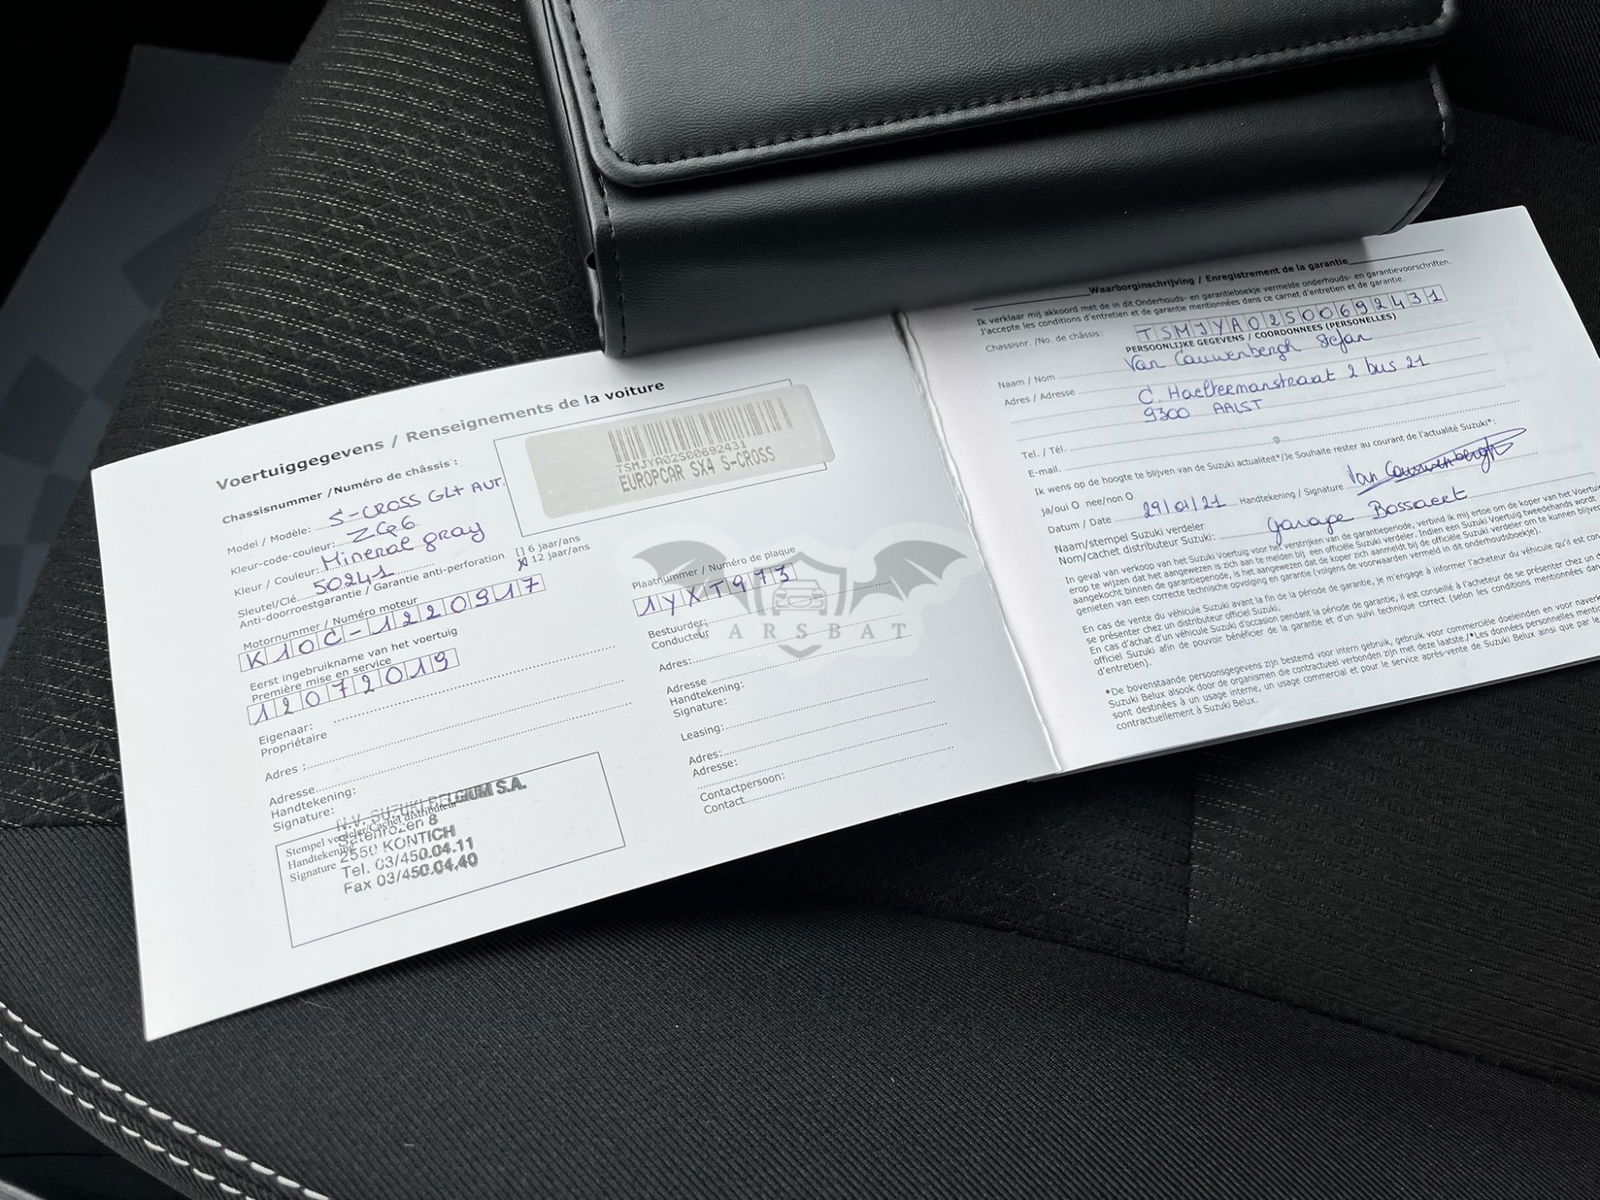 Voertuiggegevens / Renseignements de la voiture
Chassisnummer / Numéro de châssis :
TSMJYA02S00692431
EUROPCAR SX4 S-CROSS
Model / Modèle: S-CROSS GL+ AUT.
Kleur-code-couleur: ZQ6
Kleur / Couleur: Mineral gray
Sleutel/Clé 50241
Anti-doorroestgarantie / Garantie anti-perforation [] 6 jaar/ans
[x] 12 jaar/ans
Motornummer / Numéro moteur
K10C-1220917
Eerst ingebruikname van het voertuig
Première mise en service
12072019
Eigenaar:
Propriétaire
Adres :
Adresse
Handtekening:
Signature:
Stempel verdeler/Cachet distributeur
Handtekening
Signature
N.V. SUZUKI BELGIUM S.A.
Satenrozen 8
2550 KONTICH
Tel. 03/450.04.11
Fax 03/450.04.40
Plaatnummer / Numéro de plaque
1YXT973
Bestuurder:
Conducteur
Adres:
Adresse
Handtekening:
Signature:
Leasing:
Adres:
Adresse:
Contactpersoon:
Contact
CARSBAT
Waarborginschrijving / Enregistrement de la garantie
Ik verklaar mij akkoord met de in dit Onderhouds- en garantieboekje vermelde onderhouds- en garantievoorschriften.
J'accepte les conditions d'entretien et de garantie mentionnées dans ce carnet d'entretien et de garantie.
Chassisnr. /No. de châssis: TSMJYA02S00692431
PERSOONLIJKE GEGEVENS / COORDONNEES (PERSONELLES)
Naam / Nom Van Cauwenbergh Stefan
Adres / Adresse C. Haeltermanstraat 2 bus 21
9300 AALST
Tel. / Tél.
E-mail. @
Ik wens op de hoogte te blijven van de Suzuki actualiteit*/Je Souhaite rester au courant de l'actualité Suzuki*:
ja/oui O nee/non O
Datum / Date 29/01/21 Handtekening / Signature Van Cauwenbergh
Naam/stempel Suzuki verdeler
Nom/cachet distributeur Suzuki: garage Bossaert
In geval van verkoop van het Suzuki Voertuig voor het verstrijken van de garantieperiode, verbind ik mij ertoe om de koper van het Voertuig
erop te wijzen dat het aangewezen is zich aan te melden bij een officiële Suzuki verdeler. Indien een Suzuki Voertuig tweedehands wordt
aangekocht binnen de garantieperiode, is het aangewezen dat de koper zich aanmeld bij de officiële Suzuki verdeler om te kunnen
genieten van een correcte technische opvolging en garantie (volgens de voorwaarden vermeld in dit onderhoudsboekje).
En cas de vente du véhicule Suzuki avant la fin de la période de garantie, je m'engage à informer l'acheteur du véhicule qu'il est
se présenter chez un distributeur officiel Suzuki.
En cas d'achat d'un véhicule Suzuki d'occasion pendant la période de garantie, il est conseillé à l'acheteur de se présenter chez un
officiel Suzuki afin de pouvoir bénéficier de la garantie et d'un suivi technique correct (selon les conditions mentionnées dans
d'entretien).
*De bovenstaande persoonsgegevens zijn bestemd voor intern gebruik, gebruik voor commerciële doeleinden en voor
Suzuki Belux alsook door de organismen die contractueel verbonden zijn met deze laatste./*Les données personelles
sont destinées à un usage interne, un usage commercial et pour le service après-vente de Suzuki Belux ainsi que par
contractuellement à Suzuki Belux.